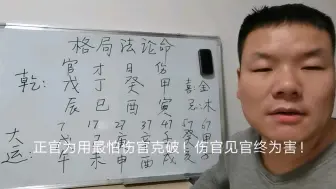 格局法论命
官 才 日 伤
乾: 戊 丁 癸 甲 喜:金
辰 巳 酉 寅 忌:木
大 7 17 27 37 47 57 67
正官为用最怕伤官克破！伤官见官终为害！
运: 午 未 申 酉